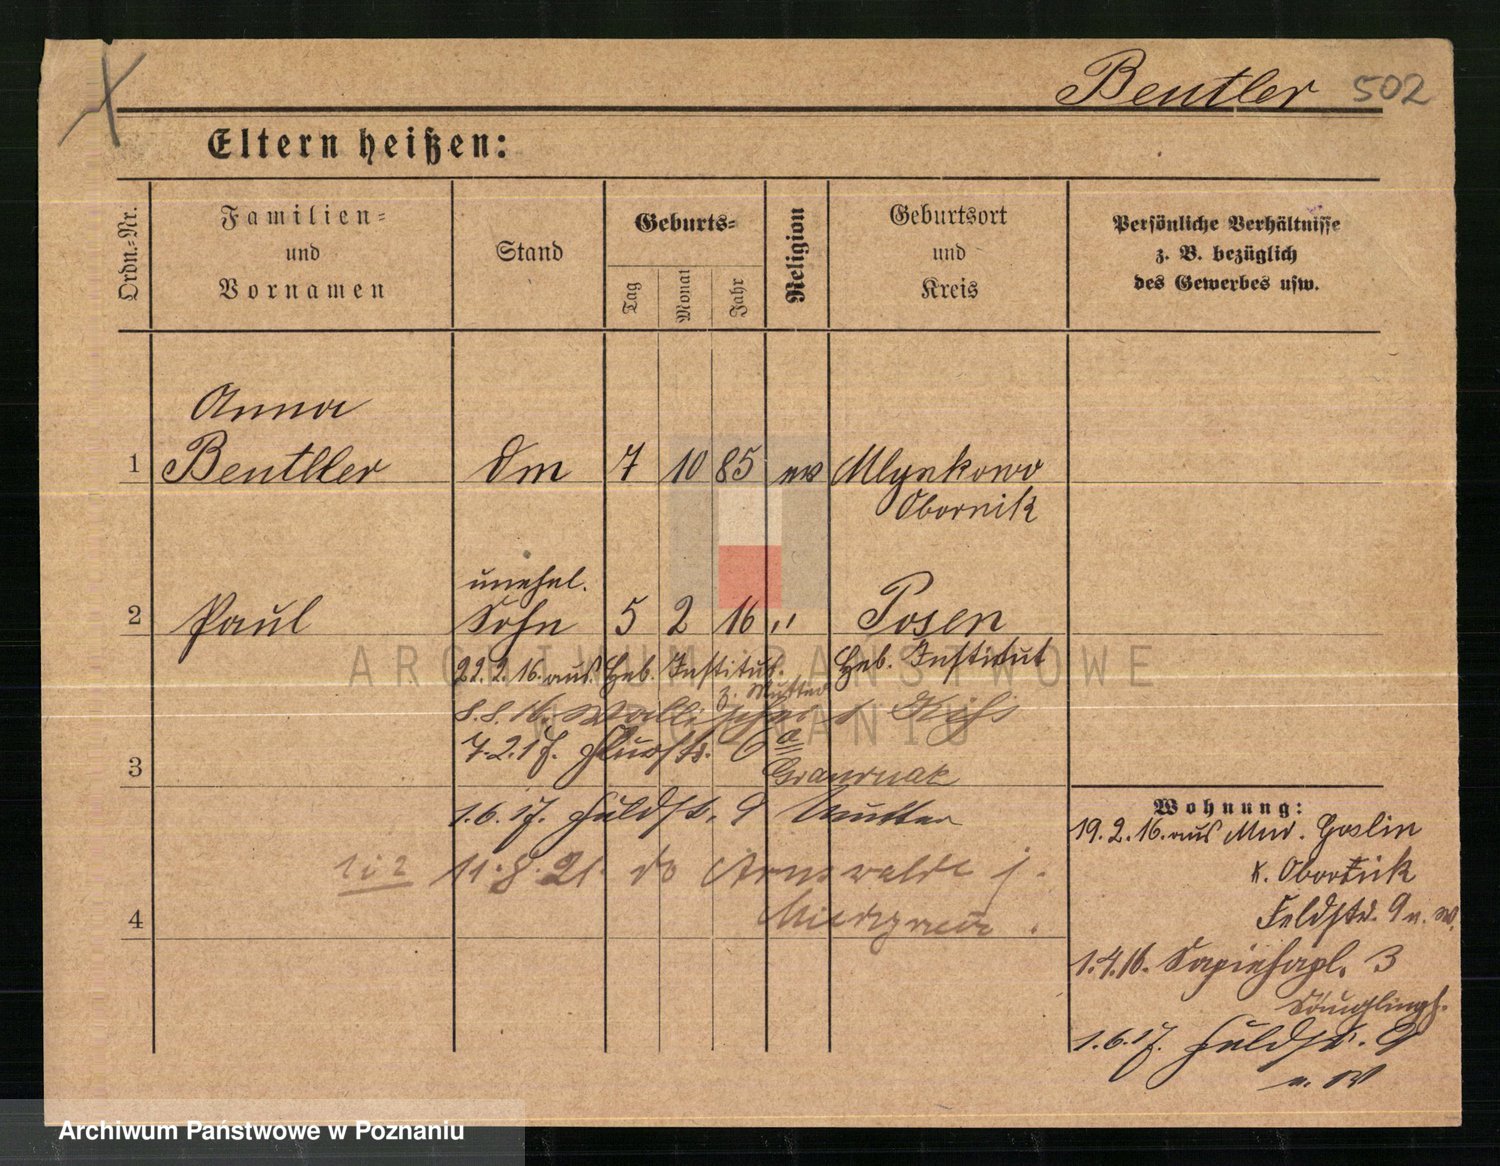 Bentler 502
Eltern heißen:
Ordn.-Nr.
Familien-
und
Vornamen
Stand
Geburts-
Tag
Monat
Jahr
Religion
Geburtsort
und
Kreis
Persönliche Verhältnisse
z. B. bezüglich
des Gewerbes usw.
Anna
1 Bentller Dm 7 10 85 ev Mlynkowo
Obornik
unehel.
2 Paul Sohn 5 2 16 " Posen
22.2.16. aus Heb. Institut. Heb. Institut
z. Mutter
8.8.16.
7.2.17. 6a
3
1.6.17. Feldstr. 9 Mutter
1 i 2 11.8.21. do Arnswalde
4
Wohnung:
19.2.16. aus Mur. Goslin
K. Obornik
Feldstr. 9 n. W.
1.4.16. Sapiehapl. 3
Säuglingh.
1.6.17. Feldstr. 9
n. W
ARCHIWUM PAŃSTWOWE
W POZNANIU
Archiwum Państwowe w Poznaniu